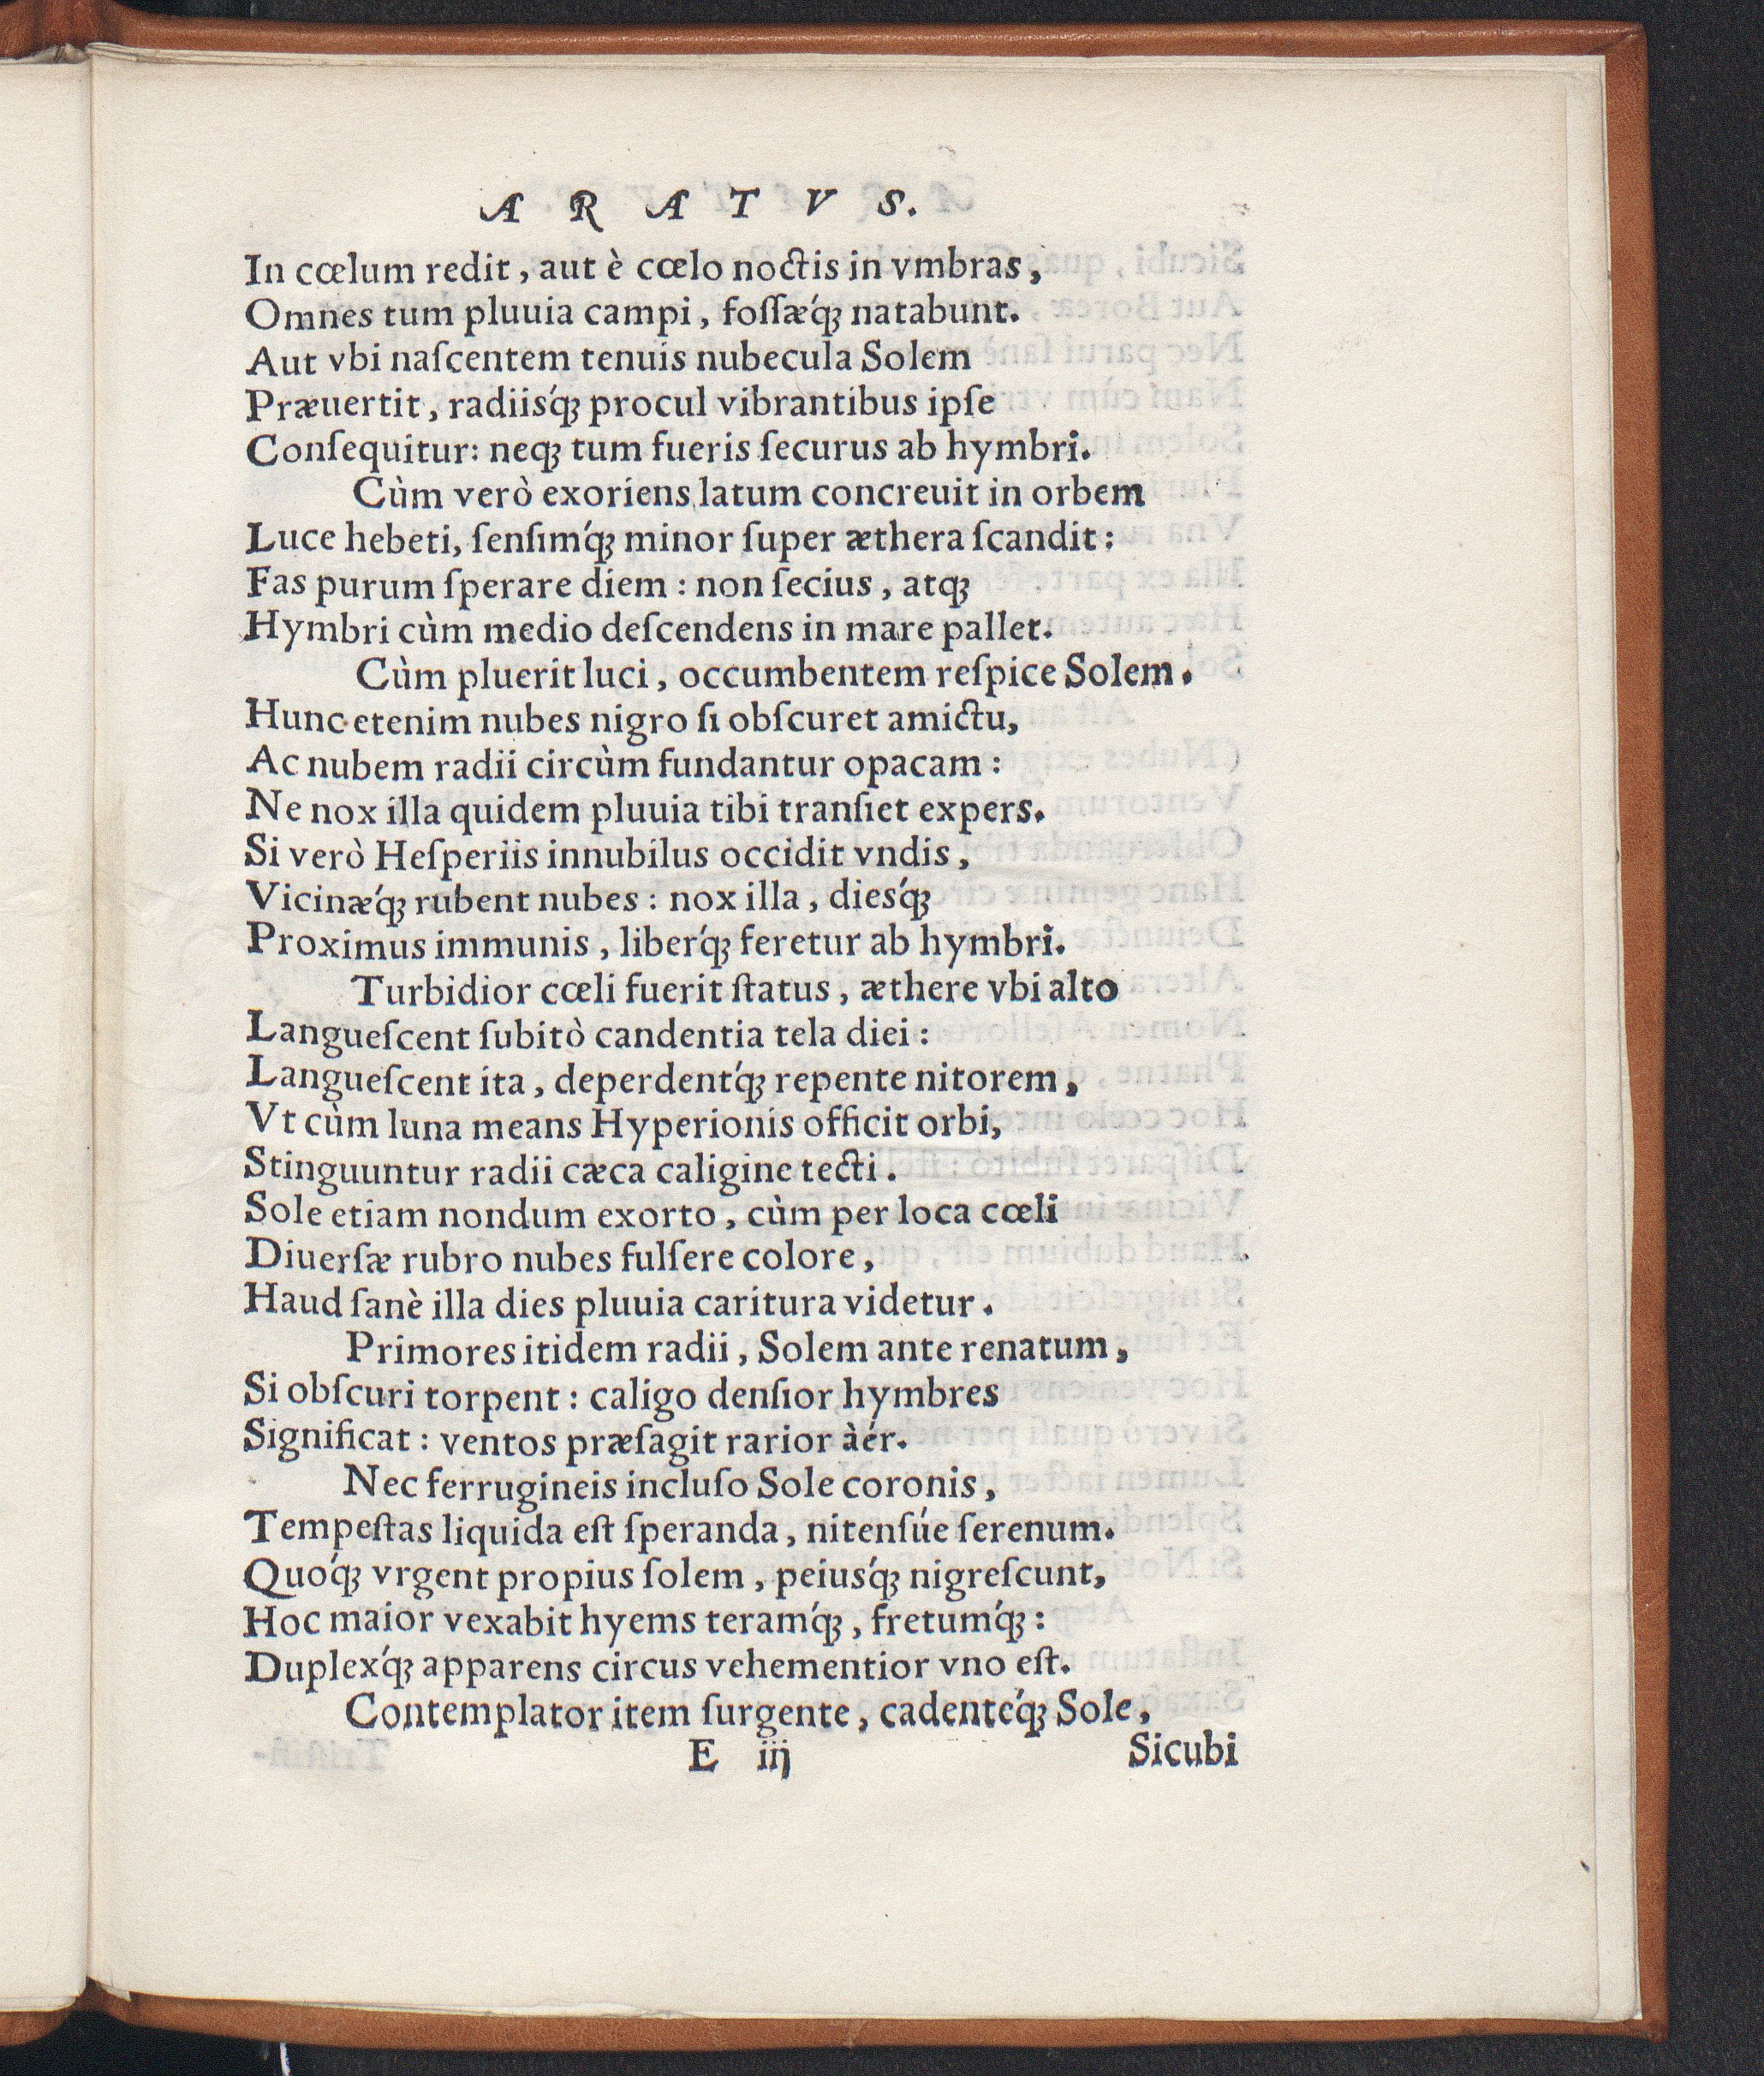 A R A T V S.
In cœlum redit, aut è cœlo noctis in vmbras,
Omnes tum pluuia campi, foſſæq́ꝫ natabunt.
Aut vbi naſcentem tenuis nubecula Solem
Præuertit, radiisq́ꝫ procul vibrantibus ipſe
Conſequitur: neqꝫ tum fueris ſecurus ab hymbri.
Cùm verò exoriens latum concreuit in orbem
Luce hebeti, ſenſimq́ꝫ minor ſuper æthera ſcandit:
Fas purum ſperare diem: non ſecius, atqꝫ
Hymbri cùm medio deſcendens in mare pallet.
Cùm pluerit luci, occumbentem reſpice Solem.
Hunc etenim nubes nigro ſi obſcuret amictu,
Ac nubem radii circùm fundantur opacam:
Ne nox illa quidem pluuia tibi tranſiet expers.
Si verò Heſperiis innubilus occidit vndis,
Vicinæq́ꝫ rubent nubes: nox illa, diesq́ꝫ
Proximus immunis, liberq́ꝫ feretur ab hymbri.
Turbidior cœli fuerit ſtatus, æthere vbi alto
Langueſcent ſubitò candentia tela diei:
Langueſcent ita, deperdentq́ꝫ repente nitorem,
Vt cùm luna means Hyperionis officit orbi,
Stinguuntur radii cæca caligine tecti.
Sole etiam nondum exorto, cùm per loca cœli
Diuerſæ rubro nubes fulſere colore,
Haud ſanè illa dies pluuia caritura videtur.
Primores itidem radii, Solem ante renatum,
Si obſcuri torpent: caligo denſior hymbres
Significat: ventos præſagit rarior àér.
Nec ferrugineis incluſo Sole coronis,
Tempeſtas liquida eſt ſperanda, nitenſúe ſerenum.
Quoq́ꝫ vrgent propius ſolem, peiusq́ꝫ nigreſcunt,
Hoc maior vexabit hyems teramq́ꝫ, fretumq́ꝫ:
Duplexq́ꝫ apparens circus vehementior vno eſt.
Contemplator item ſurgente, cadenteq́ꝫ Sole,
E iij Sicubi